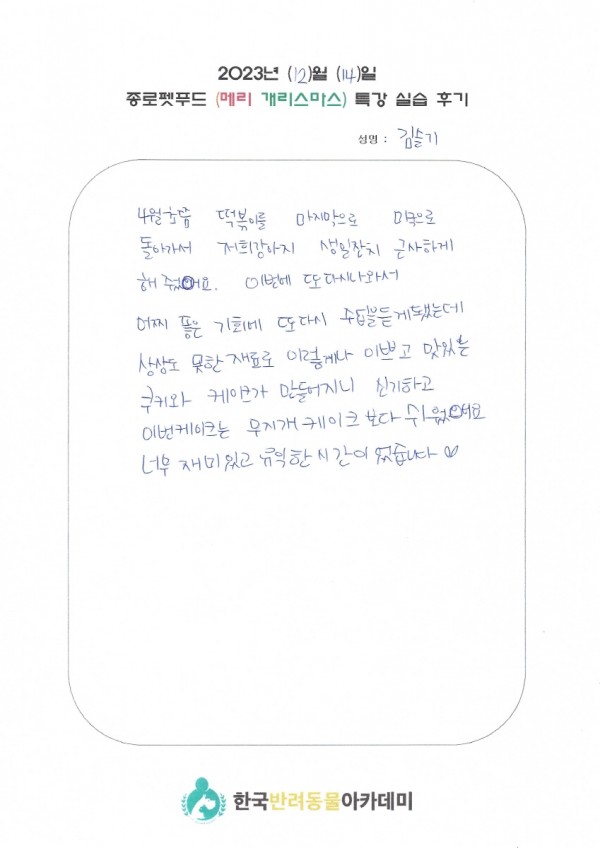 2023년 (12)월 (14)일
종로펫푸드 (메리 개리스마스) 특강 실습 후기
성명 : 김슬기
4월초쯤 떡볶이를 마지막으로 미국으로
돌아가서 저희강아지 생일잔치 근사하게
해 주었어요. 이번에 또다시나와서
어찌 좋은 기회에 또다시 수업을듣게됐는데
상상도 못한 재료로 이렇게나 이쁘고 맛있는
쿠키와 케이크가 만들어지니 신기하고
이번케이크는 무지개 케이크 보다 쉬웠어요
너무 재미있고 유익한 시간이 었습니다 ♡
한국반려동물아카데미